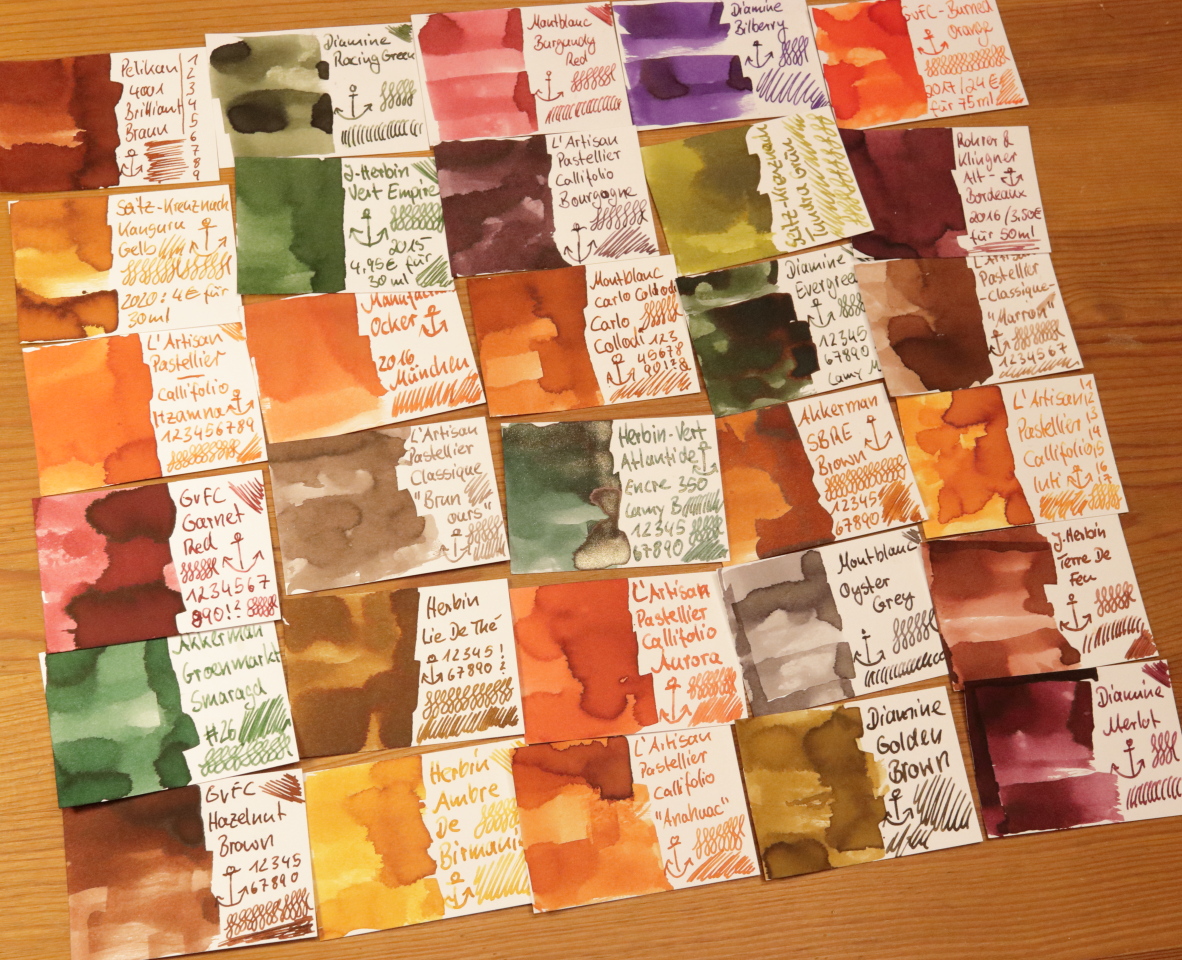 Pelikan
4001
Brilliant
Braun
1
2
3
4
5
6
7
8
9
Diamine
Racing Green
Montblanc
Burgundy
Red
Diamine
Bilberry
GvFC-Burned
Orange
2017/24€
für 75ml
Seitz-Kreuznach
Kanguru
Gelb
2020: 4€ für
30ml
J-Herbin
Vert Empire
2015
4,95€ für
30ml
L'Artisan
Pastellier
Callifolio
Bourgogne
Seitz-Kreuznach
Tundra Grün
Rohrer &
Klingner
Alt-
Bordeaux
2016/3,50€
für 50ml
L'Artisan
Pastellier
Callifolio
Itzamna
123456789
Manufactum
Ocker
2016
München
Montblanc
Carlo Collodi
Carlo
Collodi 123
45678
90!?&
Diamine
Evergreen
12345
67890
Lamy M
L'Artisan
Pastellier
-Classique-
"Marron"
1234567
GvFC
Garnet
Red
1234567
890!?
L'Artisan
Pastellier
Classique
"Brun
ours"
Herbin-Vert
Atlantide
Encre 350
Lamy B
12345
67890
Akkerman
SBRE
Brown
12345
67890
L'Artisan
Pastellier
Callifolio
Inti
12
13
14
15
16
17
Akkerman
Groenmarkt
Smaragd
#26
Herbin
Lie De Thé
12345!
67890?
L'Artisan
Pastellier
Callifolio
Aurora
Montblanc
Oyster
Grey
J-Herbin
Terre De
Feu
GvFC
Hazelnut
Brown
12345
67890
Herbin
Ambre
De
Birmanie
L'Artisan
Pastellier
Callifolio
"Anahuac"
Diamine
Golden
Brown
Diamine
Merlot